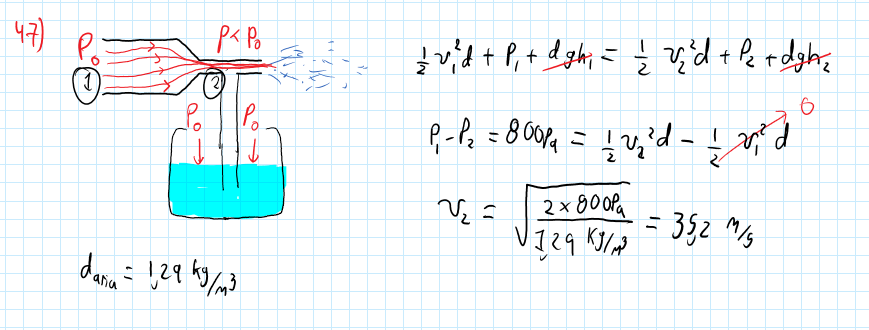 47)
P₀
P < P₀
1
2
P₀ P₀
d aria = 1,29 kg/m³
½ v₁² d + P₁ + dgh₁ = ½ v₂² d + P₂ + dgh₂
P₁ - P₂ = 800 Pa = ½ v₂² d - ½ v₁² d 0
v₂ = √(2 × 800 Pa / 1,29 kg/m³) = 35,2 m/s